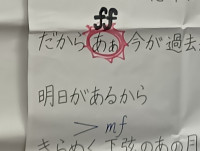 ff
だから あぁ 今が過去
明日があるから
> mf
きらめく下弦のあの月